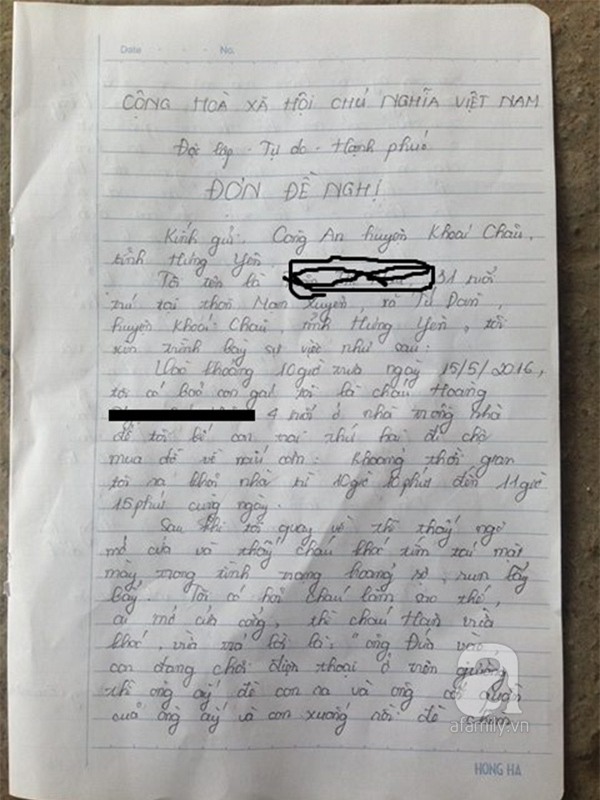 Date No.
CỘNG HOÀ XÃ HỘI CHỦ NGHĨA VIỆT NAM
Độc lập - Tự do - Hạnh phúc
ĐƠN ĐỀ NGHỊ
Kính gửi: Công An huyện Khoái Châu,
tỉnh Hưng Yên.
Tôi tên là 31 tuổi
trú tại thôn Man Xuyên, xã Tứ Dân,
huyện Khoái Châu, tỉnh Hưng Yên, tôi
xin trình bày sự việc như sau:
Vào khoảng 10 giờ trưa ngày 15/5/2016,
tôi có bảo con gái tôi là cháu Hoàng
4 tuổi ở nhà trông nhà
để tôi bế con trai thứ hai đi chợ
mua đồ về nấu cơm. Khoảng thời gian
tôi ra khỏi nhà từ 10 giờ phút đến 11 giờ
15 phút cùng ngày.
Sau khi tôi quay về thì thấy ngõ
mở cửa và thấy cháu khóc tím tái mặt
mày trong tình trạng hoảng sợ, run lẩy
bẩy. Tôi có hỏi cháu làm sao thế,
ai mở cửa cổng, thì cháu vừa
khóc, vừa trả lời là: "ông vào,
con đang chơi điện thoại ở trên giường
thì ông ấy đè con ra và ông cởi quần
của ông ấy và con xuống rồi để chim
afamily.vn
HONG HA